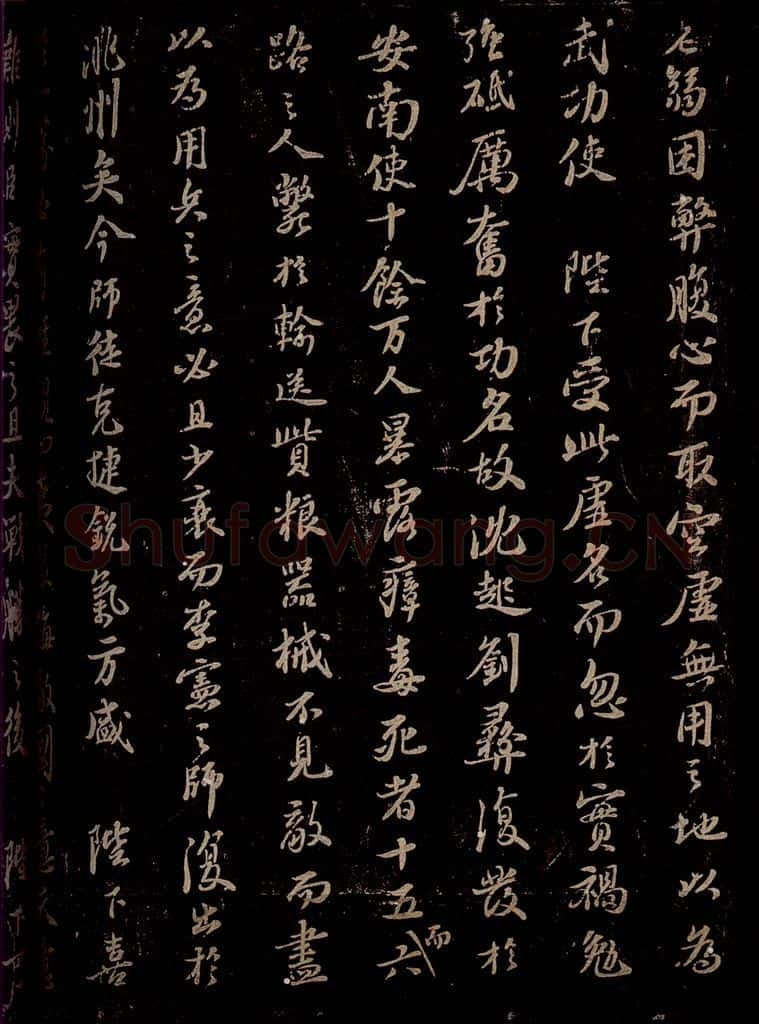 弱困弊腹心而取空虛無用之地以為
武功使 陛下受此虛名而忽於實禍勉
強砥厲奮於功名故沈起劉彝復發於
安南使十餘万人暴露瘴毒死者十而五六
路之人斃於輸送貲粮器械不見敵而盡
以為用兵之意必且少衰而李憲之師復出於
洮州矣今師徒克捷銳氣方盛 陛下喜
臣實畏之且夫戰勝之後 陛下
Shufawang.CN